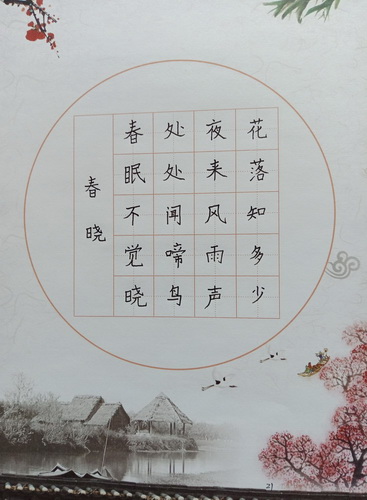 春晓
春眠不觉晓
处处闻啼鸟
夜来风雨声
花落知多少
21